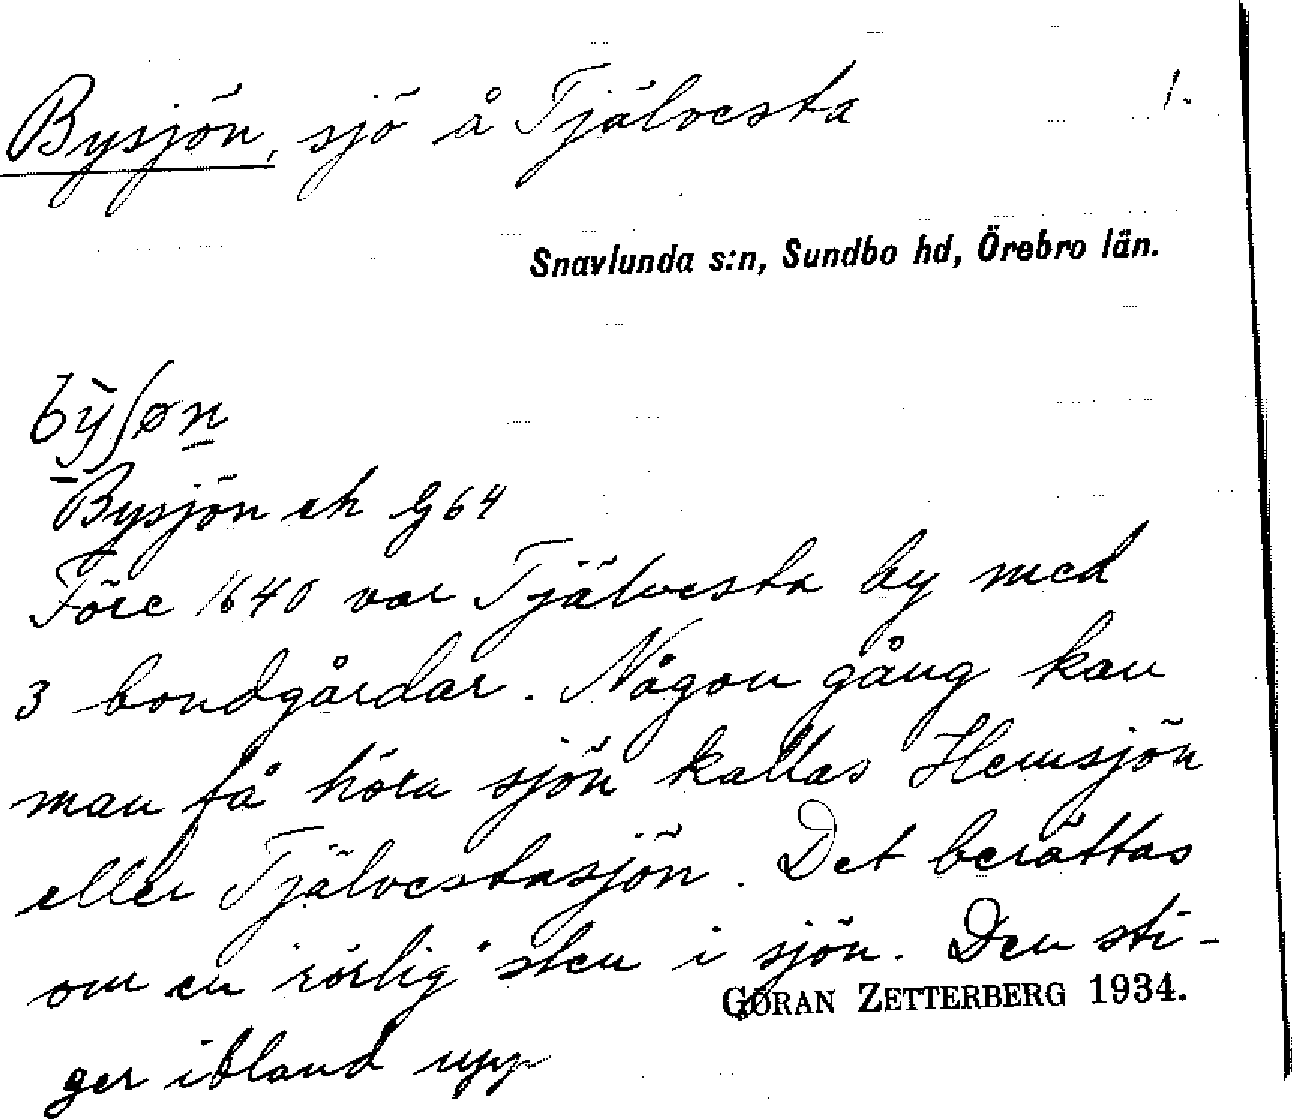 Bysjön, sjö å Tjälvesta 1.
Snavlunda s:n, Sundbo hd, Örebro län.
bỳʃøn
Bysjön ek G64
Före 1640 var Tjälvesta by med
3 bondgårdar. Någon gång kan
man få höra sjön kallas Hemsjön
eller Tjälvestasjön. Det berättas
om en "rörlig" sten i sjön. Den sti-
GÖRAN ZETTERBERG 1934.
ger ibland upp